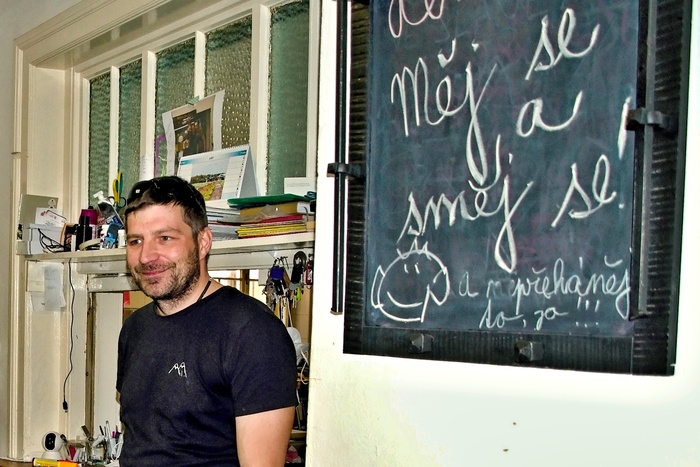 Měj se
a
směj se!
a nepřeháněj
to, ja !!!